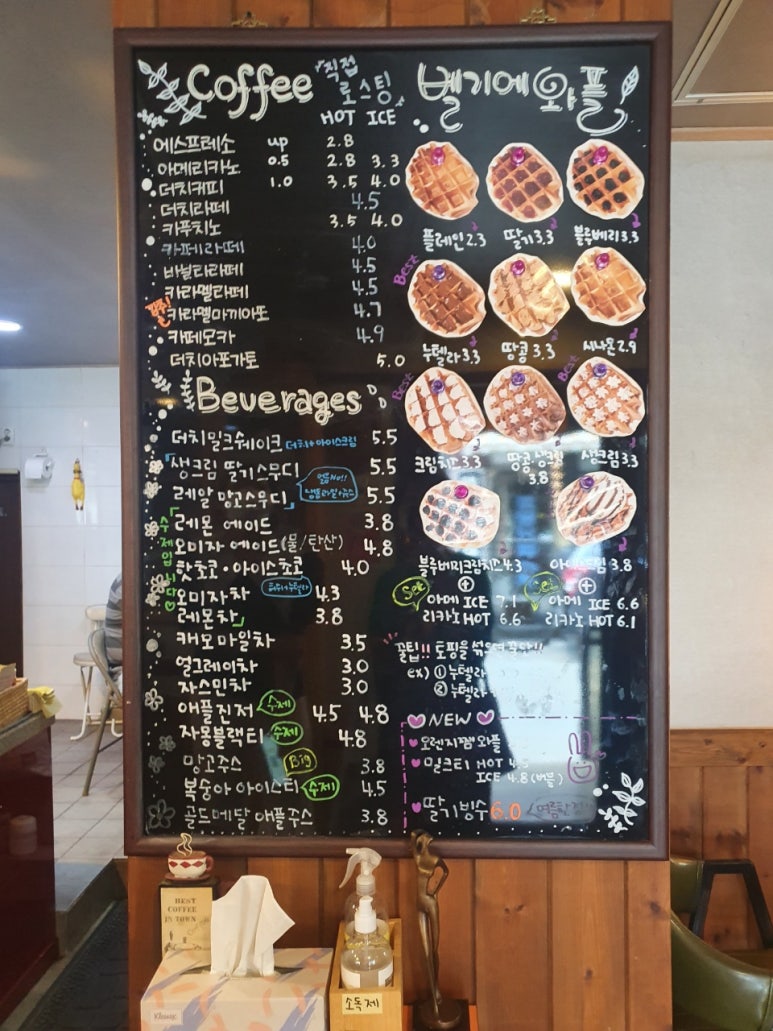 Coffee 직접 로스팅
HOT ICE
에스프레소 up 2.8
아메리카노 0.5 2.8 3.3
더치커피 1.0 3.5 4.0
더치라떼 4.5
카푸치노 3.5 4.0
카페라떼 4.0
바닐라라떼 4.5
카라멜라떼 4.5
강추! 카라멜마끼아또 4.7
카페모카 4.9
더치아포가토 5.0
Beverages
더치밀크쉐이크 더치+아이스크림 5.5
생크림 딸기스무디 5.5
레알 망고스무디 5.5
수제입니다
레몬 에이드 3.8
오미자 에이드(물/탄산) 4.8
핫초코·아이스초코 4.0
오미자차 4.3
레몬차 3.8
캐모마일차 3.5
얼그레이차 3.0
자스민차 3.0
애플진저 수제 4.5 4.8
자몽블랙티 수제 4.8
망고주스 Big 3.8
복숭아 아이스티 수제 4.5
골드메달 애플주스 3.8
벨기에 와플
플레인 2.3 딸기 3.3 블루베리 3.3
Best
누텔라 3.3 땅콩 3.3 시나몬 2.9
Best Best
크림치즈 3.3 땅콩 생크림 3.8 생크림 3.3
블루베리크림치즈 4.3
Set 아메 ICE 7.1
리카노 HOT 6.6
3.8
Set 아메 ICE 6.6
리카노 HOT 6.1
꿀팁!! 토핑을
ex) ① 누텔라
② 누텔라
NEW
오렌지쨈 와플
밀크티 HOT 4.5
ICE 4.8 (버블)
딸기빙수 6.0
BEST
COFFEE
IN TOWN
Kleenex
소독제